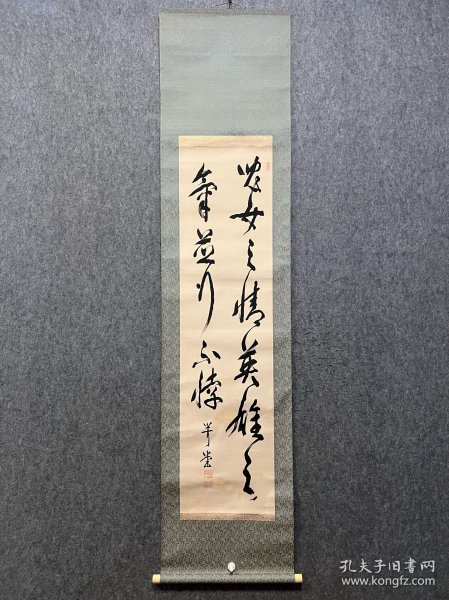 兒女之情英雄之
氣並行不悖
半堂
孔夫子旧書网
www.kongfz.com